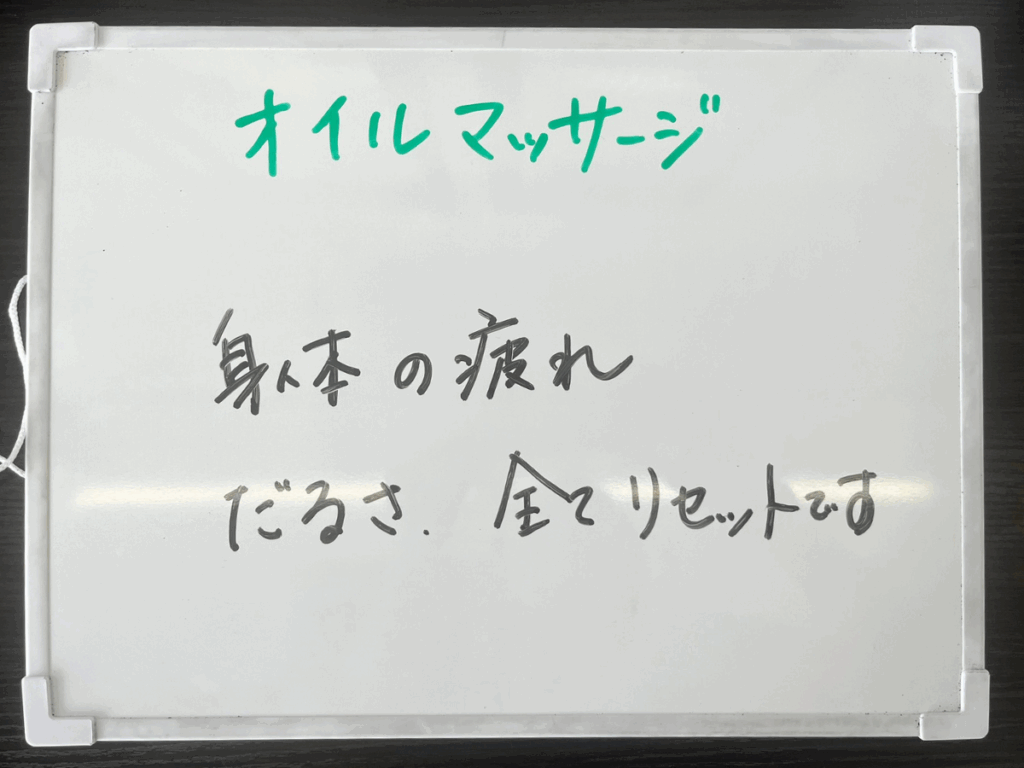 オイルマッサージ
身体の疲れ
だるさ、全てリセットです